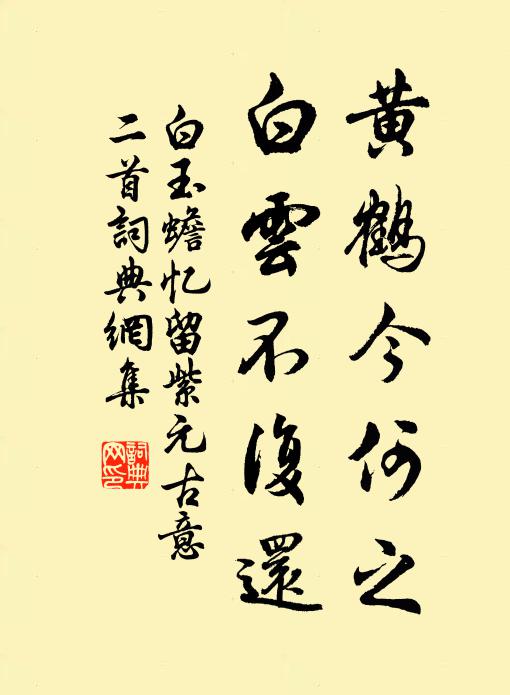 黄鶴今何之
白雲不復還
白玉蟾忆留紫元古意
二首詞典網集
詞典
网印